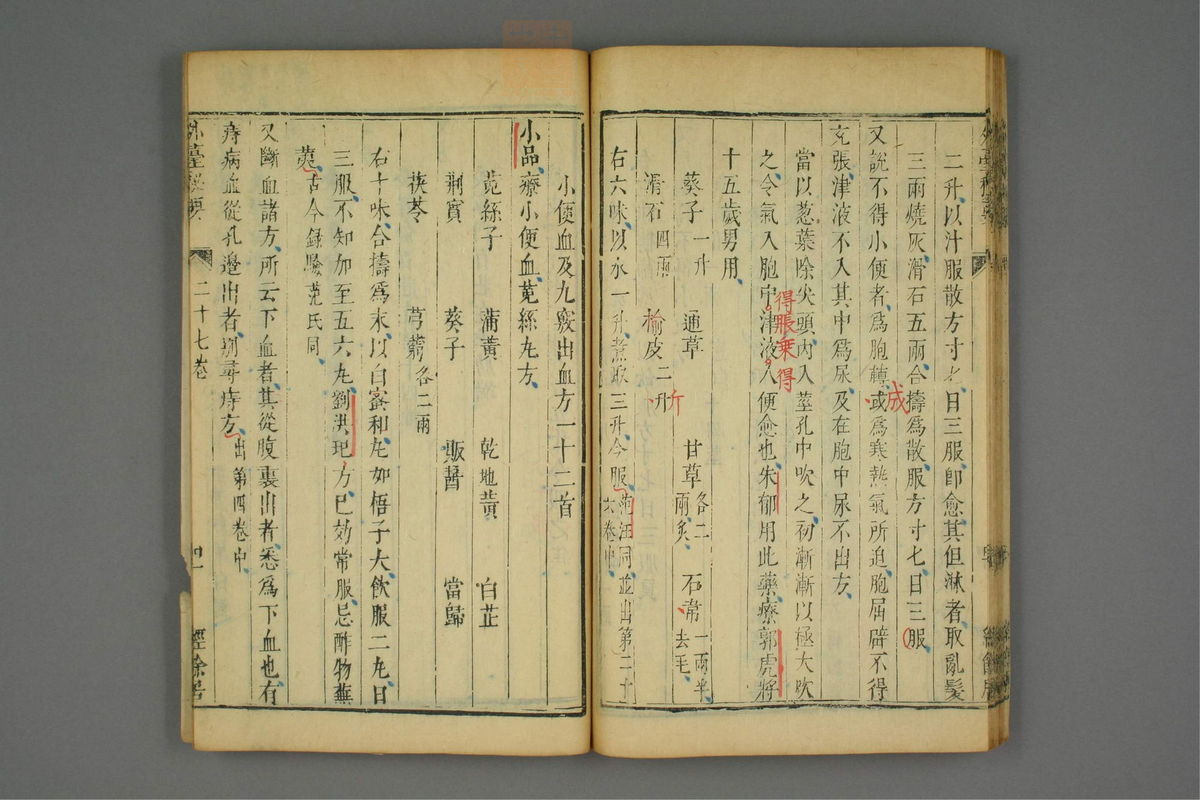 二升以汁服散方寸七日三服卽愈其但淋者取亂髮
三兩燒灰滑石五兩合擣爲散服方寸七日三服
又說不得小便者爲胞轉或爲寒熱氣所迫胞屈辟不得
成
充張津液不入其中爲尿及在胞中尿不出方
當以葱葉除尖頭內入莖孔中吹之初漸漸以極大吹
之令氣入胞中津液入便愈也朱郁用此藥療郭虎將
得脹乗得
十五歲男用
葵子一升 通草 甘草各二兩炙 石常一兩半去毛
滑石四兩 榆皮二升
斤
右六味以水一升煮取三升令服范汪同並出第二十六卷中
小便血及九竅出血方一十二首
小品療小便血菟絲丸方
菟絲子 蒲黃 乾地黃 白芷
荆實 葵子 敗醬 當歸
茯苓 芎藭各二兩
右十味合擣爲末以白蜜和丸如梧子大飲服二丸日
三服不知加至五六丸劉洪玘方已効常服忌酢物蕪
荑古今録驗范氏同
又斷血諸方所云下血者其從腹裏出者悉爲下血也有
痔病血從孔邊出者別尋痔方出第四卷中
外臺秘要 二十七卷 經餘居